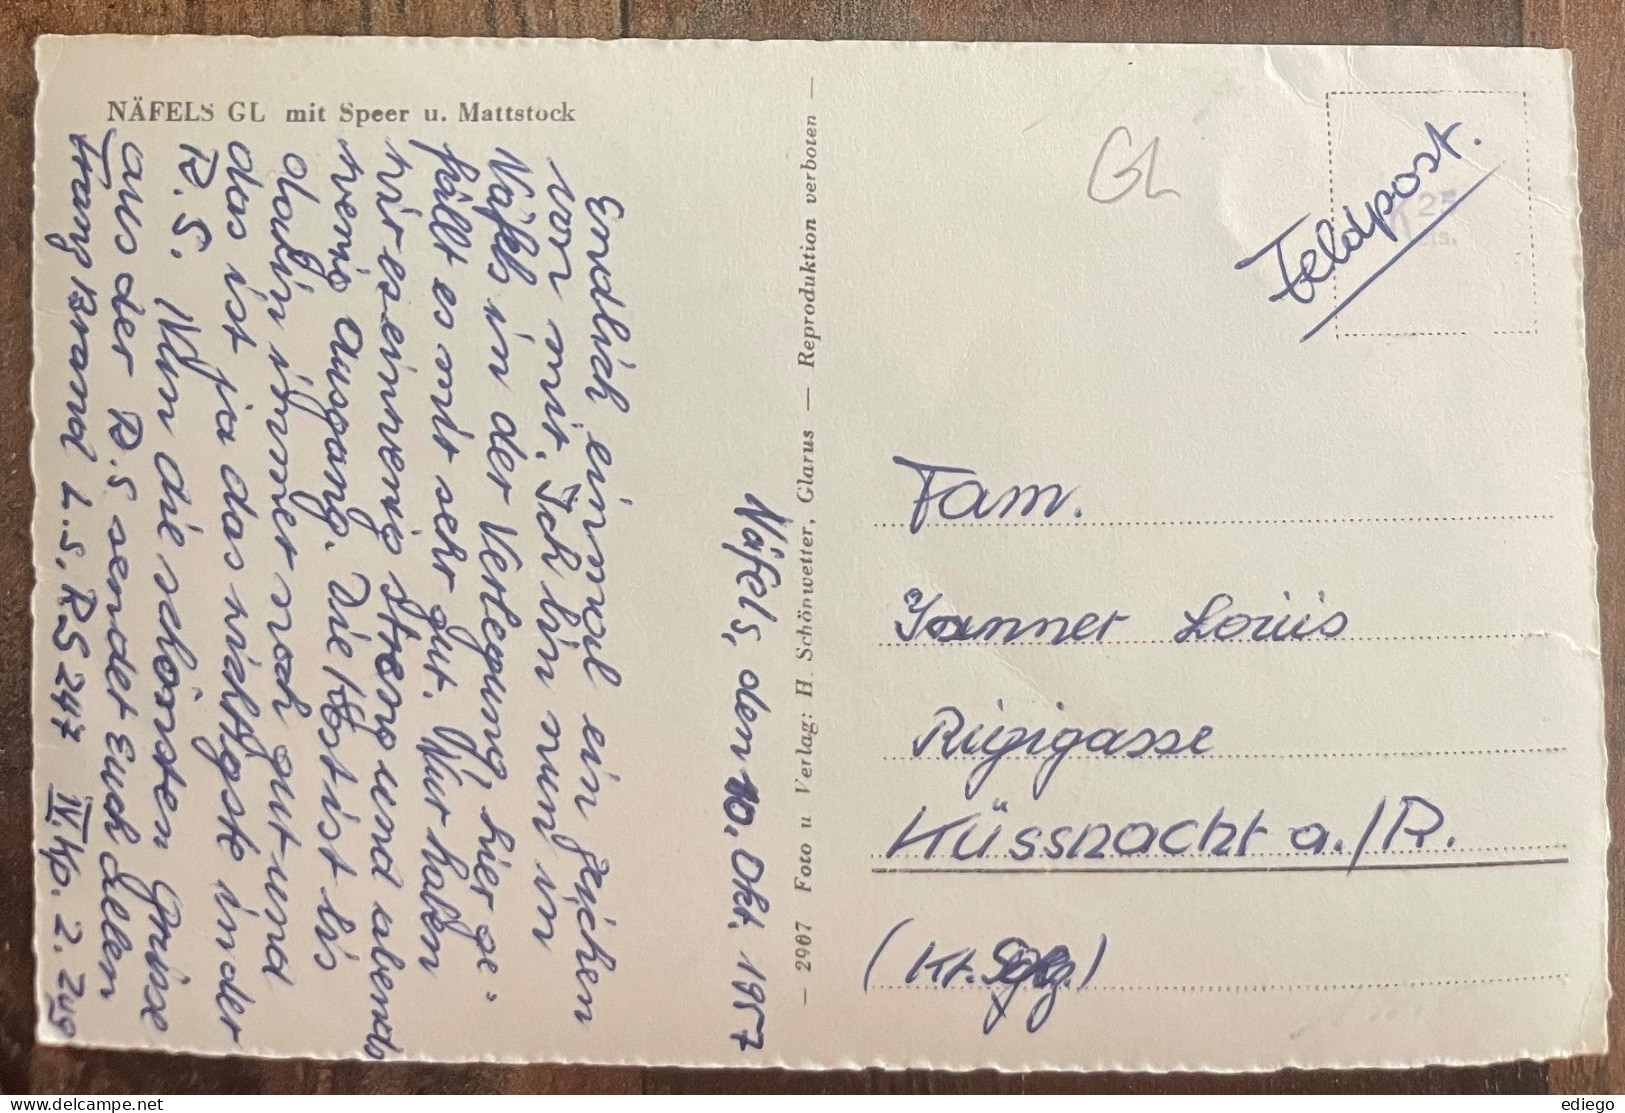 NÄFELS GL mit Speer u. Mattstock
Näfels, den 10. Okt. 1957
Endlich einmal ein Zeichen
von mir. Ich bin nun in
Näfels in der Verlegung hier ge-
fällt es mir sehr gut. Nur haben
wir es ein wenig streng und abends
wenig Ausgang. Die Kost ist bis
dahin immer noch gut und
das ist ja das wichtigste in der
R. S. Nun die schönsten Grüsse
aus der R. S sendet Euch allen
L. S. RS 247 IV Kp. 2. Zug
2907 Foto u. Verlag: H. Schönwetter, Glarus — Reproduktion verboten —
GL
Feldpost.
25
cts.
Fam.
Janner Louis
Rigigasse
Küssnacht a./R.
(Kt. )
ediego